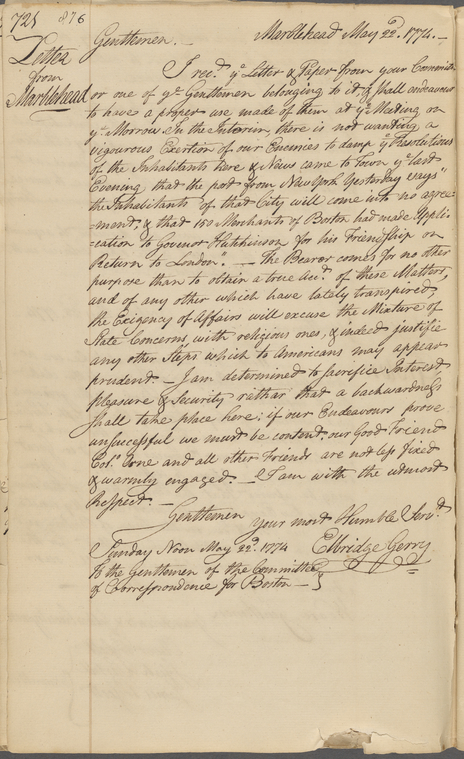 725 876
Letter
from
Marblehead
Gentlemen. — Marblehead May 22d. 1774. —
I recd. ye Letter & Paper from your Committee
or one of ye Gentlemen belonging to it & shall endeavour
to have a proper use made of them at ye Meeting on
ye Morrow. In the Interim, there is not wanting a
vigourous Exertion of our Enemies to damp ye Resolutions
of the Inhabitants here & News came to Town ye last
Evening "that the post from New York Yesterday says"
the Inhabitants of that City will come into no agree=
=ment; & that 150 Merchants of Boston had made Appli=
=cation to Govenor Hutchinson for his Friendship on
Return to London." — The Bearer comes for no other
purpose than to obtain a true Acct. of these Matters,
and of any other which have lately transpired
the Exigency of Affairs will excuse the Mixture of
State Concerns with religious ones, & indeed justifie
any other Steps which to Americans may appear
prudent — I am determined to sacrefice Interest
pleasure & Security rathar that a backwardness
shall take place here; if our Endeavours prove
unsuccessful we must be content. our Good Friend
Colo. Orne and all other Friends are not less fixed
& warmly engaged. — I am with the utmost
Respect. —
Gentlemen
your most Humble Servt.
Sunday Noon May 22d. 1774 Elbridge Gerry
To the Gentlemen of the Committee
of Correspondence for Boston —